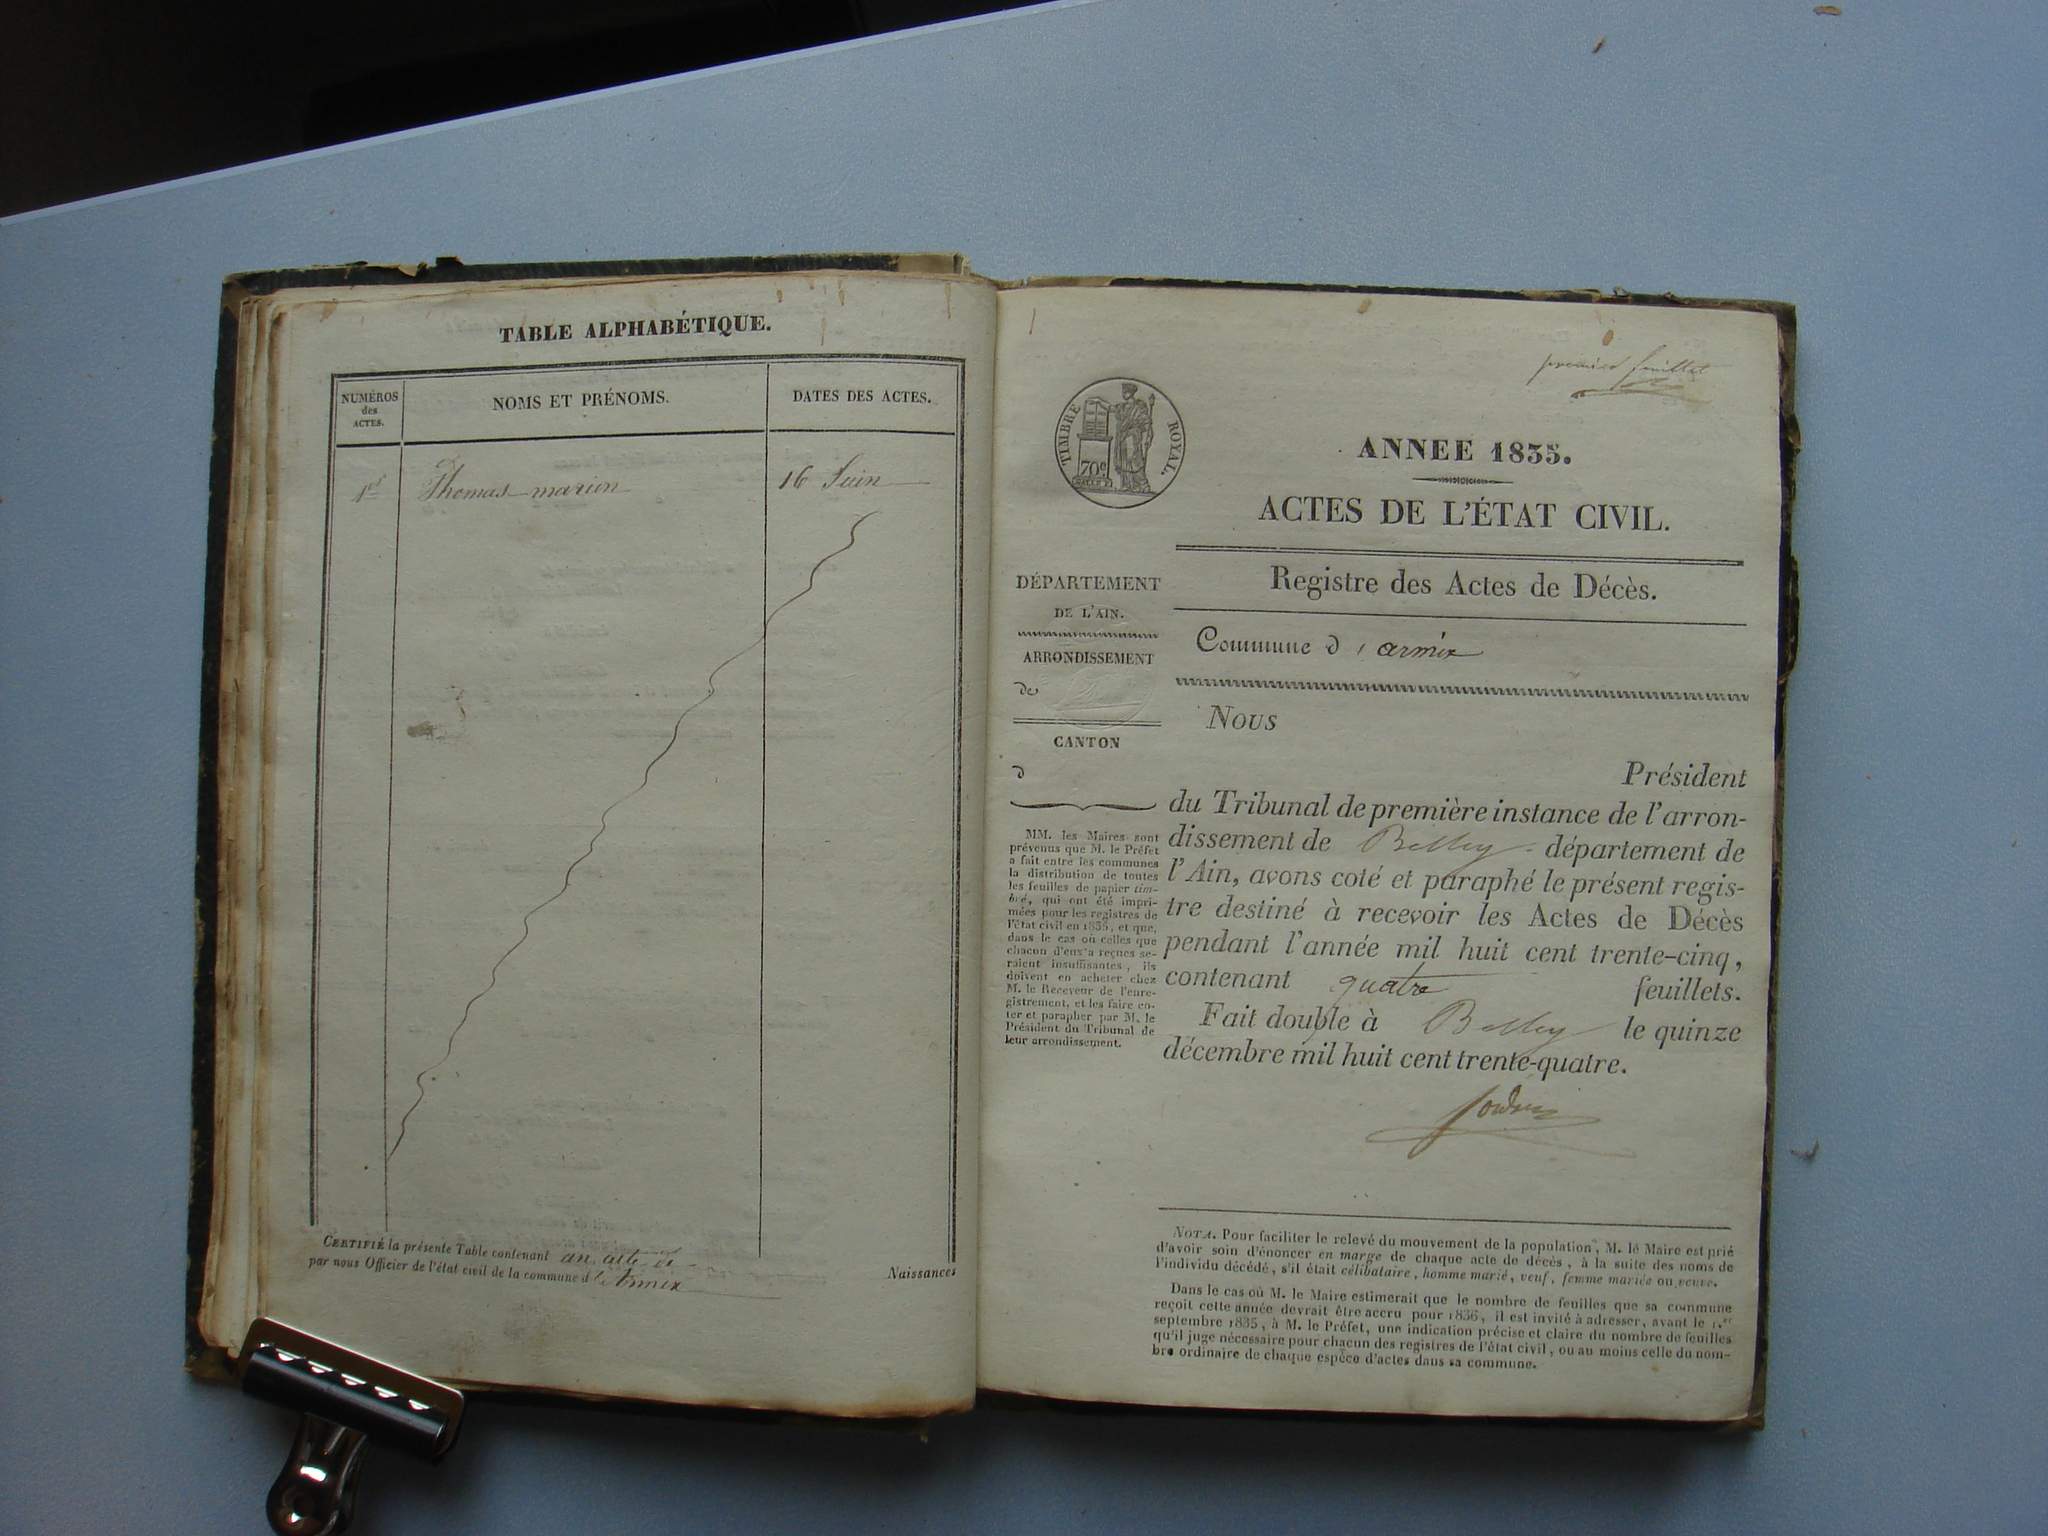 TABLE ALPHABÉTIQUE.
NUMÉROS
des
ACTES.
NOMS ET PRÉNOMS.
DATES DES ACTES.
1er Thomas marion 16 Juin
CERTIFIÉ la présente Table contenant un acte
par nous Officier de l'état civil de la commune d'Armix
Naissances
premier feuillet
TIMBRE ROYAL.
70c
ANNEE 1835.
ACTES DE L'ÉTAT CIVIL.
Registre des Actes de Décès.
DÉPARTEMENT
DE L'AIN.
ARRONDISSEMENT
de
CANTON
d
MM. les Maires sont
prévenus que M. le Préfet
a fait entre les communes
la distribution de toutes
les feuilles de papier tim-
bré, qui ont été impri-
mées pour les registres de
l'état civil en 1835, et que,
dans le cas où celles que
chacun d'eux a reçues se-
raient insuffisantes, ils
doivent en acheter chez
M. le Receveur de l'enre-
gistrement, et les faire co-
ter et parapher par M. le
Président du Tribunal de
leur arrondissement.
Commune d'armix
Nous
Président
du Tribunal de première instance de l'arron-
dissement de Belley département de
l'Ain, avons coté et paraphé le présent regis-
tre destiné à recevoir les Actes de Décès
pendant l'année mil huit cent trente-cinq,
contenant quatre feuillets.
Fait double à Belley le quinze
décembre mil huit cent trente-quatre.
NOTA. Pour faciliter le relevé du mouvement de la population, M. le Maire est prié
d'avoir soin d'énoncer en marge de chaque acte de décès, à la suite des noms de
l'individu décédé, s'il était célibataire, homme marié, veuf, femme mariée ou veuve.
Dans le cas où M. le Maire estimerait que le nombre de feuilles que sa commune
reçoit cette année devrait être accru pour 1836, il est invité à adresser, avant le 1.er
septembre 1835, à M. le Préfet, une indication précise et claire du nombre de feuilles
qu'il juge nécessaire pour chacun des registres de l'état civil, ou au moins celle du nom-
bre ordinaire de chaque espèce d'actes dans sa commune.